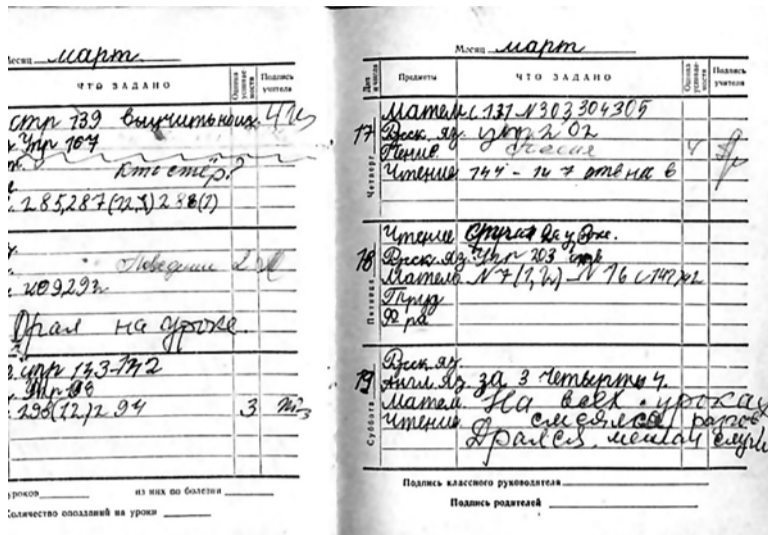 Месяц март
ЧТО ЗАДАНО
Оценка успеваемости
Подпись учителя
стр 139 выучить наиз. 4
Упр 167
Кто стёр?
285,287(12,3) 288(1)
Поведение 2
Орал на уроке.
упр 143-142
Упр 98
298(12)294 3
уроков из них по болезни
Количество опозданий на уроки
Месяц март
Предметы
ЧТО ЗАДАНО
Оценка успеваемости
Подпись учителя
17
Четверг
Матем с 137 N 303 304 305
Русск. яз. упр 202
Пение. 4
Чтение 144 - 147 отв на в
18
Пятница
Чтение
Русск. яз. Упр 203
Матем N 7(1,2) - N 16
Труд
Ф ра
19
Суббота
Русск яз
Англ. яз. за 3 четверть 4.
Матем. На всех уроках
Чтение смеялся
Дрался, мешал
Подпись классного руководителя
Подпись родителей